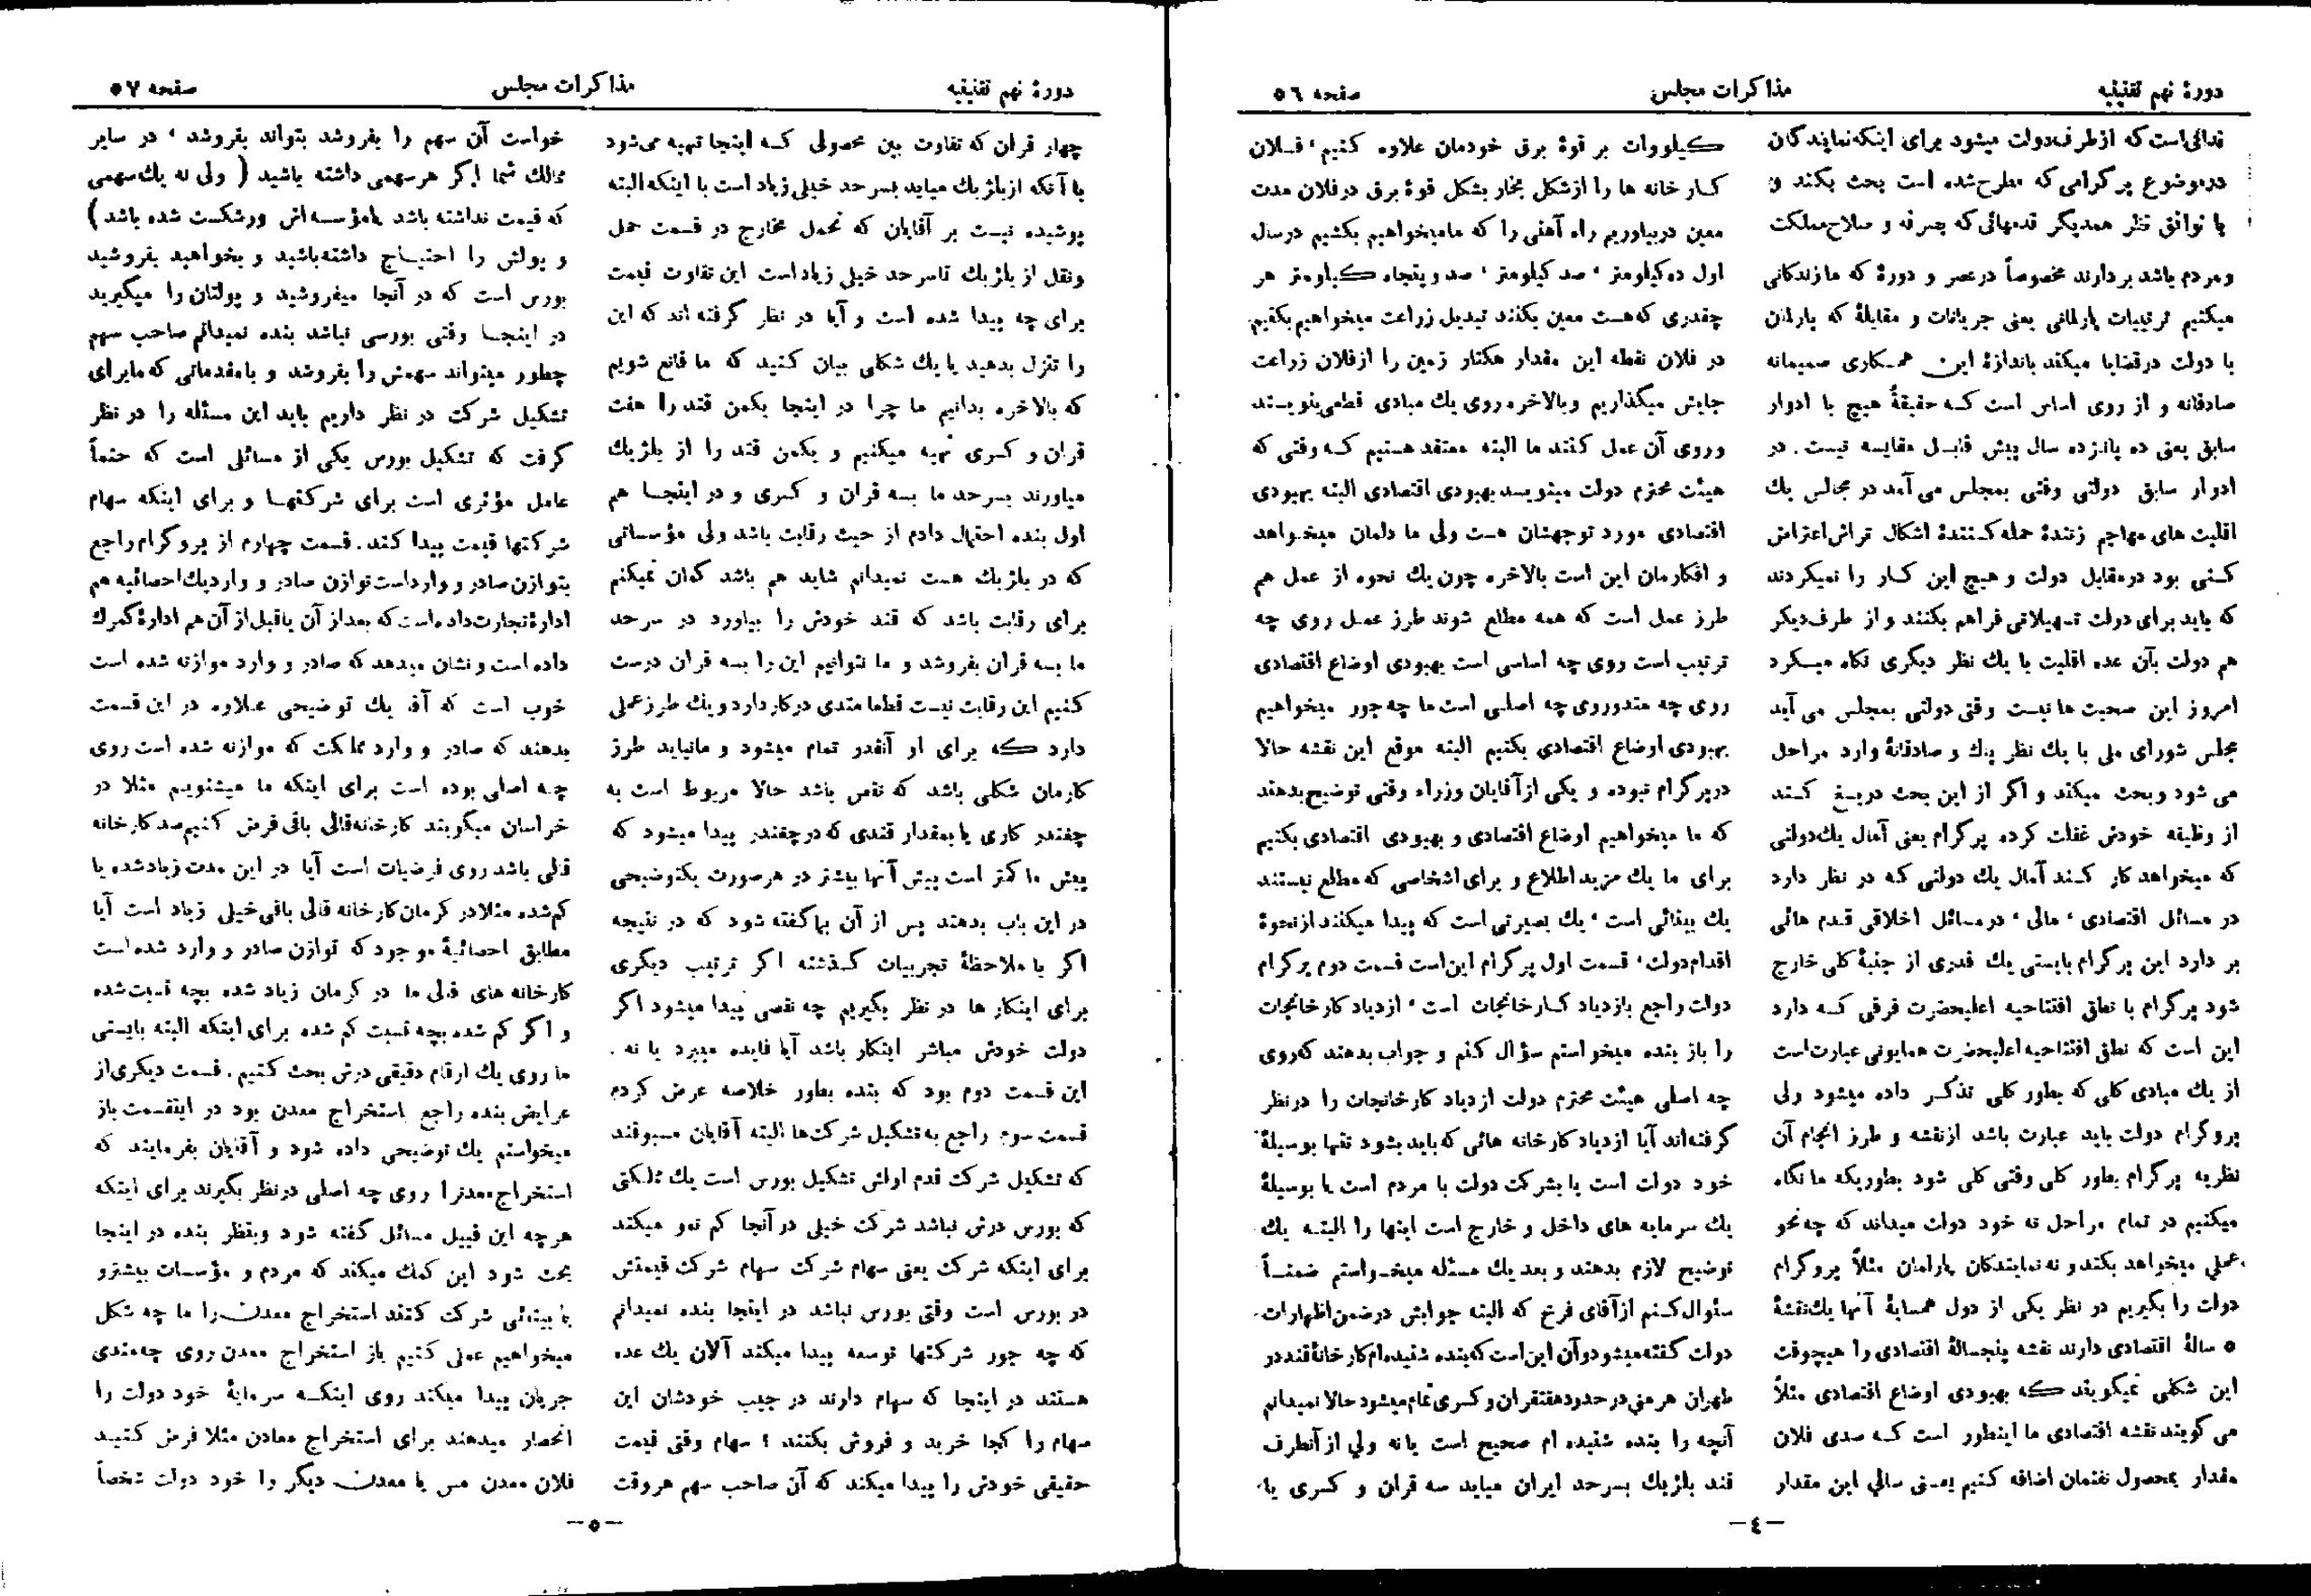 دورهٔ نهم تقنینیه
مذاکرات مجلس
صفحه ٥٦
ندائی است که از طرف دولت میشود برای اینکه نمایندگان
در موضوع پرگرامی که مطرح شده است بحث بکنند و
با توافق نظر همدیگر قدمهائی که بصرفه و صلاح مملکت
و مردم باشد بردارند مخصوصاً در عصر و دورهٔ که ما زندگانی
میکنیم ترتیبات پارلمانی یعنی جریانات و مقابلهٔ که پارلمان
با دولت در قضایا میکند باندازهٔ این همکاری صمیمانه
صادقانه و از روی اساس است که حقیقةً هیچ با ادوار
سابق یعنی ده پانزده سال پیش قابل مقایسه نیست . در
ادوار سابق دولتی وقتی بمجلس می آمد در مجالس یك
اقلیت های مهاجم زنندهٔ حمله کنندهٔ اشکال تراش اعتراض
کنی بود در مقابل دولت و هیچ این کار را نمیکردند
که باید برای دولت تسهیلاتی فراهم بکنند و از طرف دیگر
هم دولت بآن عده اقلیت با یك نظر دیگری نگاه میکرد
امروز این صحبت ها نیست وقتی دولتی بمجلس می آید
مجلس شورای ملی با یك نظر پاك و صادقانهٔ وارد مراحل
می شود و بحث میکند و اگر از این بحث دریغ کند
از وظیفه خودش غفلت کرده پرگرام یعنی آمال یك دولتی
که میخواهد کار کند آمال یك دولتی که در نظر دارد
در مسائل اقتصادی ، مالی ، در مسائل اخلاقی قدم هائی
بر دارد این پرگرام بایستی یك قدری از جنبهٔ کلی خارج
شود پرگرام با نطق افتتاحیه اعلیحضرت فرقی که دارد
این است که نطق افتتاحیه اعلیحضرت همایونی عبارت است
از یك مبادی کلی که بطور کلی تذکر داده میشود ولی
پروگرام دولت باید عبارت باشد از نقشه و طرز انجام آن
نظریه پرگرام بطور کلی وقتی کلی شود بطوریکه ما نگاه
میکنیم در تمام مراحل نه خود دولت میداند که چه نحو
عملی میخواهد بکند و نه نمایندگان پارلمان مثلاً پروگرام
دولت را بگیریم در نظر یکی از دول همسایهٔ آنها یك نقشهٔ
٥ سالهٔ اقتصادی دارند نقشه پنجسالهٔ اقتصادی را هیچوقت
این شکلی نمیگویند که بهبودی اوضاع اقتصادی مثلاً
می گویند نقشه اقتصادی ما اینطور است که صدی فلان
مقدار بمحصول نفتمان اضافه کنیم یعنی سالی این مقدار
کیلووات بر قوهٔ برق خودمان علاوه کنیم ، فلان
کار خانه ها را از شکل بخار بشکل قوهٔ برق در فلان مدت
معین در بیاوریم راه آهنی را که ما میخواهیم بکشیم در سال
اول ده کیلومتر ، صد کیلومتر ، صد و پنجاه کیلومتر هر
چقدری که هست معین بکنند تبدیل زراعت میخواهیم بکنیم
در فلان نقطه این مقدار هکتار زمین را از فلان زراعت
جایش میگذاریم و بالاخره روی یك مبادی قطعی بنویسند
و روی آن عمل کنند ما البته معتقد هستیم که وقتی که
هیئت محترم دولت مینویسد بهبودی اقتصادی البته بهبودی
اقتصادی مورد توجهشان هست ولی ما دلمان میخواهد
و افکارمان این است بالاخره چون یك نحوه از عمل هم
طرز عمل است که همه مطلع شوند طرز عمل روی چه
ترتیب است روی چه اساسی است بهبودی اوضاع اقتصادی
روی چه متد و روی چه اصلی است ما چه جور میخواهیم
بهبودی اوضاع اقتصادی بکنیم البته موقع این نقشه حالا
در پرگرام نبوده و یکی از آقایان وزراء وقتی توضیح بدهند
که ما میخواهیم اوضاع اقتصادی و بهبودی اقتصادی بکنیم
برای ما یك مزید اطلاع و برای اشخاصی که مطلع نیستند
یك بینائی است ، یك بصیرتی است که پیدا میکنند از نحوهٔ
اقدام دولت ، قسمت اول پرگرام این است قسمت دوم پرگرام
دولت راجع بازدیاد کارخانجات است ، ازدیاد کارخانجات
را باز بنده میخواستم سؤال کنم و جواب بدهند که روی
چه اصلی هیئت محترم دولت ازدیاد کارخانجات را در نظر
گرفته اند آیا ازدیاد کارخانه هائی که باید بشود تنها بوسیلهٔ
خود دولت است یا بشرکت دولت با مردم است یا بوسیلهٔ
یك سرمایه های داخل و خارج است اینها را البته یك
توضیح لازم بدهند و بعد یك مسئله میخواستم ضمناً
سئوال کنم از آقای فرخ که البته جوابش در ضمن اظهارات
دولت گفته میشود و آن این است که بنده شنیده ام کارخانهٔ قند در
طهران هر منی در حدود هفت قران و کسری تمام میشود حالا نمیدانم
آنچه را بنده شنیده ام صحیح است یا نه ولی از آنطرف
قند بلژیك بسرحد ایران میاید سه قران و کسری یا
-٤-
دورهٔ نهم تقنینیه
مذاکرات مجلس
صفحه ٥٧
چهار قران که تفاوت بین محصولی که اینجا تهیه می شود
با آنکه از بلژیك میاید بسرحد خیلی زیاد است با اینکه البته
پوشیده نیست بر آقایان که تحمل مخارج در قسمت حمل
و نقل از بلژیك تا سرحد خیلی زیاد است این تفاوت قیمت
برای چه پیدا شده است و آیا در نظر گرفته اند که این
را تنزل بدهید یا یك شکلی بیان کنید که ما قانع شویم
که بالاخره بدانیم ما چرا در اینجا یکمن قند را هفت
قران و کسری تهیه میکنیم و یکمن قند را از بلژیك
میاورند بسرحد ما بسه قران و کسری و در اینجا هم
اول بنده احتمال دادم از حیث رقابت باشد ولی مؤسساتی
که در بلژیك هست نمیدانم شاید هم باشد گمان نمیکنم
برای رقابت باشد که قند خودش را بیاورد در سرحد
ما بسه قران بفروشد و ما نتوانیم این را بسه قران درست
کنیم این رقابت نیست قطعا متدی در کار دارد و یك طرز عملی
دارد که برای او آنقدر تمام میشود و ما نباید طرز
کارمان شکلی باشد که نقص باشد حالا مربوط است به
چغندر کاری یا بمقدار قندی که در چغندر پیدا میشود که
پیش ما کمتر است پیش آنها بیشتر در هر صورت یک توضیحی
در این باب بدهند پس از آن بما گفته شود که در نتیجه
اگر با ملاحظهٔ تجربیات گذشته اگر ترتیب دیگری
برای اینکار ها در نظر بگیریم چه نقصی پیدا میشود اگر
دولت خودش مباشر اینکار باشد آیا فایده میبرد یا نه .
این قسمت دوم بود که بنده بطور خلاصه عرض کردم
قسمت سوم راجع به تشکیل شرکت ها البته آقایان مسبوقند
که تشکیل شرکت قدم اولش تشکیل بورس است یك مملکتی
که بورس درش نباشد شرکت خیلی در آنجا کم نمو میکند
برای اینکه شرکت یعنی سهام شرکت سهام شرکت قیمتش
در بورس است وقتی بورس نباشد در اینجا بنده نمیدانم
که چه جور شرکتها توسعه پیدا میکند آلان یك عده
هستند در اینجا که سهام دارند در جیب خودشان این
سهام را کجا خرید و فروش بکنند ؟ سهام وقتی قیمت
حقیقی خودش را پیدا میکند که آن صاحب سهم هر وقت
خواست آن سهم را بفروشد بتواند بفروشد ، در سایر
ممالك شما اگر هر سهمی داشته باشید ( ولی نه یك سهمی
که قیمت نداشته باشد یا مؤسسه اش ورشکست شده باشد )
و پولش را احتیاج داشته باشید و بخواهید بفروشید
بورس است که در آنجا میفروشید و پولتان را میگیرید
در اینجا وقتی بورسی نباشد بنده نمیدانم صاحب سهم
چطور میتواند سهمش را بفروشد و با مقدماتی که ما برای
تشکیل شرکت در نظر داریم باید این مسئله را در نظر
گرفت که تشکیل بورس یکی از مسائلی است که حتماً
عامل مؤثری است برای شرکتها و برای اینکه سهام
شرکتها قیمت پیدا کند . قسمت چهارم از پروگرام راجع
بتوازن صادر و وارد است توازن صادر و وارد یك احصائیه هم
ادارهٔ تجارت داده است که بعد از آن یا قبل از آن هم ادارهٔ گمرك
داده است و نشان میدهد که صادر و وارد موازنه شده است
خوب است که آقا یك توضیحی علاوه در این قسمت
بدهند که صادر و وارد مملکت که موازنه شده است روی
چه اصلی بوده است برای اینکه ما میشنویم مثلا در
خراسان میگویند کارخانه قالی بافی فرض کنیم صد کارخانه
قالی باشد روی فرضیات است آیا در این مدت زیاد شده یا
کم شده مثلا در کرمان کارخانه قالی بافی خیلی زیاد است آیا
مطابق احصائیهٔ موجود که توازن صادر و وارد شده است
کارخانه های قالی ما در کرمان زیاد شده بچه نسبت شده
و اگر کم شده بچه نسبت کم شده برای اینکه البته بایستی
ما روی یك ارقام دقیقی درش بحث کنیم . قسمت دیگری از
عرایض بنده راجع باستخراج معدن بود در اینقسمت باز
میخواستم یك توضیحی داده شود و آقایان بفرمایند که
استخراج معدنرا روی چه اصلی در نظر بگیرند برای اینکه
هر چه این قبیل مسائل گفته شود و بنظر بنده در اینجا
بحث شود این کمك میکند که مردم و مؤسسات بیشتر و
با بینائی شرکت کنند استخراج معدن را ما چه شکل
میخواهیم عملی کنیم باز استخراج معدن روی چه متدی
جریان پیدا میکند روی اینکه سرمایهٔ خود دولت را
انحصار میدهند برای استخراج معادن مثلا فرض کنید
فلان معدن مس یا معدن دیگر را خود دولت شخصاً
-٥-